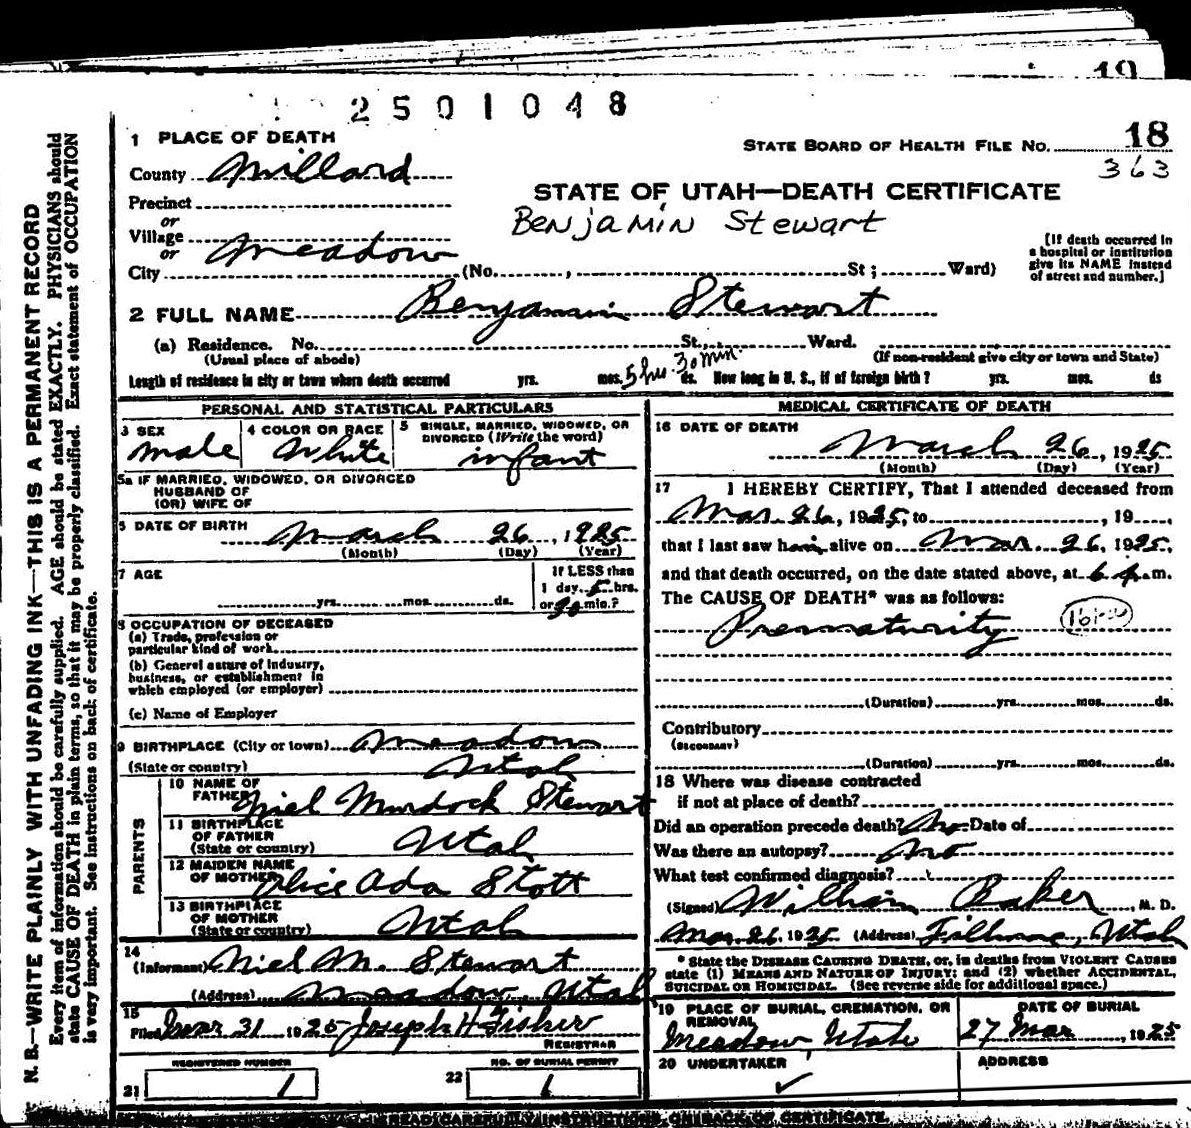 19
2501048
1 PLACE OF DEATH
STATE BOARD OF HEALTH FILE NO. 18
363
County Millard
STATE OF UTAH—DEATH CERTIFICATE
Precinct
or
Benjamin Stewart
Village
or
Meadow
City (No. , St; Ward)
[If death occurred in
a hospital or institution
give its NAME instead
of street and number.]
2 FULL NAME Benjamin Stewart
(a) Residence. No. St., Ward.
(Usual place of abode)
(If non-resident give city or town and State)
Length of residence in city or town where death occurred yrs. mos. 5 hrs. 30 min. ds. How long in U. S., if of foreign birth? yrs. mos. ds
PERSONAL AND STATISTICAL PARTICULARS
3 SEX
male
4 COLOR OR RACE
White
5 SINGLE, MARRIED, WIDOWED, OR
DIVORCED (Write the word)
infant
5a IF MARRIED, WIDOWED, OR DIVORCED
HUSBAND OF
(OR) WIFE OF
DATE OF BIRTH
March 26, 1925
(Month) (Day) (Year)
7 AGE
yrs. mos. ds.
If LESS than
1 day, 5 hrs.
or 30 min.?
8 OCCUPATION OF DECEASED
(a) Trade, profession or
particular kind of work
(b) General nature of industry,
business, or establishment in
which employed (or employer)
(c) Name of Employer
9 BIRTHPLACE (City or town) Meadow
(State or country) Utah
PARENTS
10 NAME OF
FATHER Niel Murdock Stewart
11 BIRTHPLACE
OF FATHER
(State or country) Utah
12 MAIDEN NAME
OF MOTHER Alice Ada Stott
13 BIRTHPLACE
OF MOTHER
(State or country) Utah
14
(Informant) Niel M. Stewart
(Address) Meadow Utah
15
Filed Mar 31 1925 Joseph H Fisher
REGISTRAR
REGISTERED NUMBER
21 1
NO. OF BURIAL PERMIT
22 1
MEDICAL CERTIFICATE OF DEATH
16 DATE OF DEATH
March 26, 1925
(Month) (Day) (Year)
17 I HEREBY CERTIFY, That I attended deceased from
Mar. 26, 1925, to , 19
that I last saw him alive on Mar. 26, 1925,
and that death occurred, on the date stated above, at 6 p.m.
The CAUSE OF DEATH* was as follows:
Prematurity
(Duration) yrs. mos. ds.
Contributory
(SECONDARY)
(Duration) yrs. mos. ds.
18 Where was disease contracted
if not at place of death?
Did an operation precede death? No Date of
Was there an autopsy? No
What test confirmed diagnosis?
(Signed) William Baker, M. D.
Mar. 26, 1925 (Address) Fillmore, Utah
* State the DISEASE CAUSING DEATH, or, in deaths from VIOLENT CAUSES
state (1) MEANS AND NATURE OF INJURY; and (2) whether ACCIDENTAL,
SUICIDAL OR HOMICIDAL. (See reverse side for additional space.)
19 PLACE OF BURIAL, CREMATION, OR
REMOVAL
Meadow, Utah
DATE OF BURIAL
27 Mar, 1925
20 UNDERTAKER
ADDRESS
READ CAREFULLY INSTRUCTIONS ON BACK OF CERTIFICATE.
N. B.—WRITE PLAINLY WITH UNFADING INK—THIS IS A PERMANENT RECORD
Every item of information should be carefully supplied. AGE should be stated EXACTLY. PHYSICIANS should
state CAUSE OF DEATH in plain terms, so that it may be properly classified. Exact statement of OCCUPATION
is very important. See instructions on back of certificate.